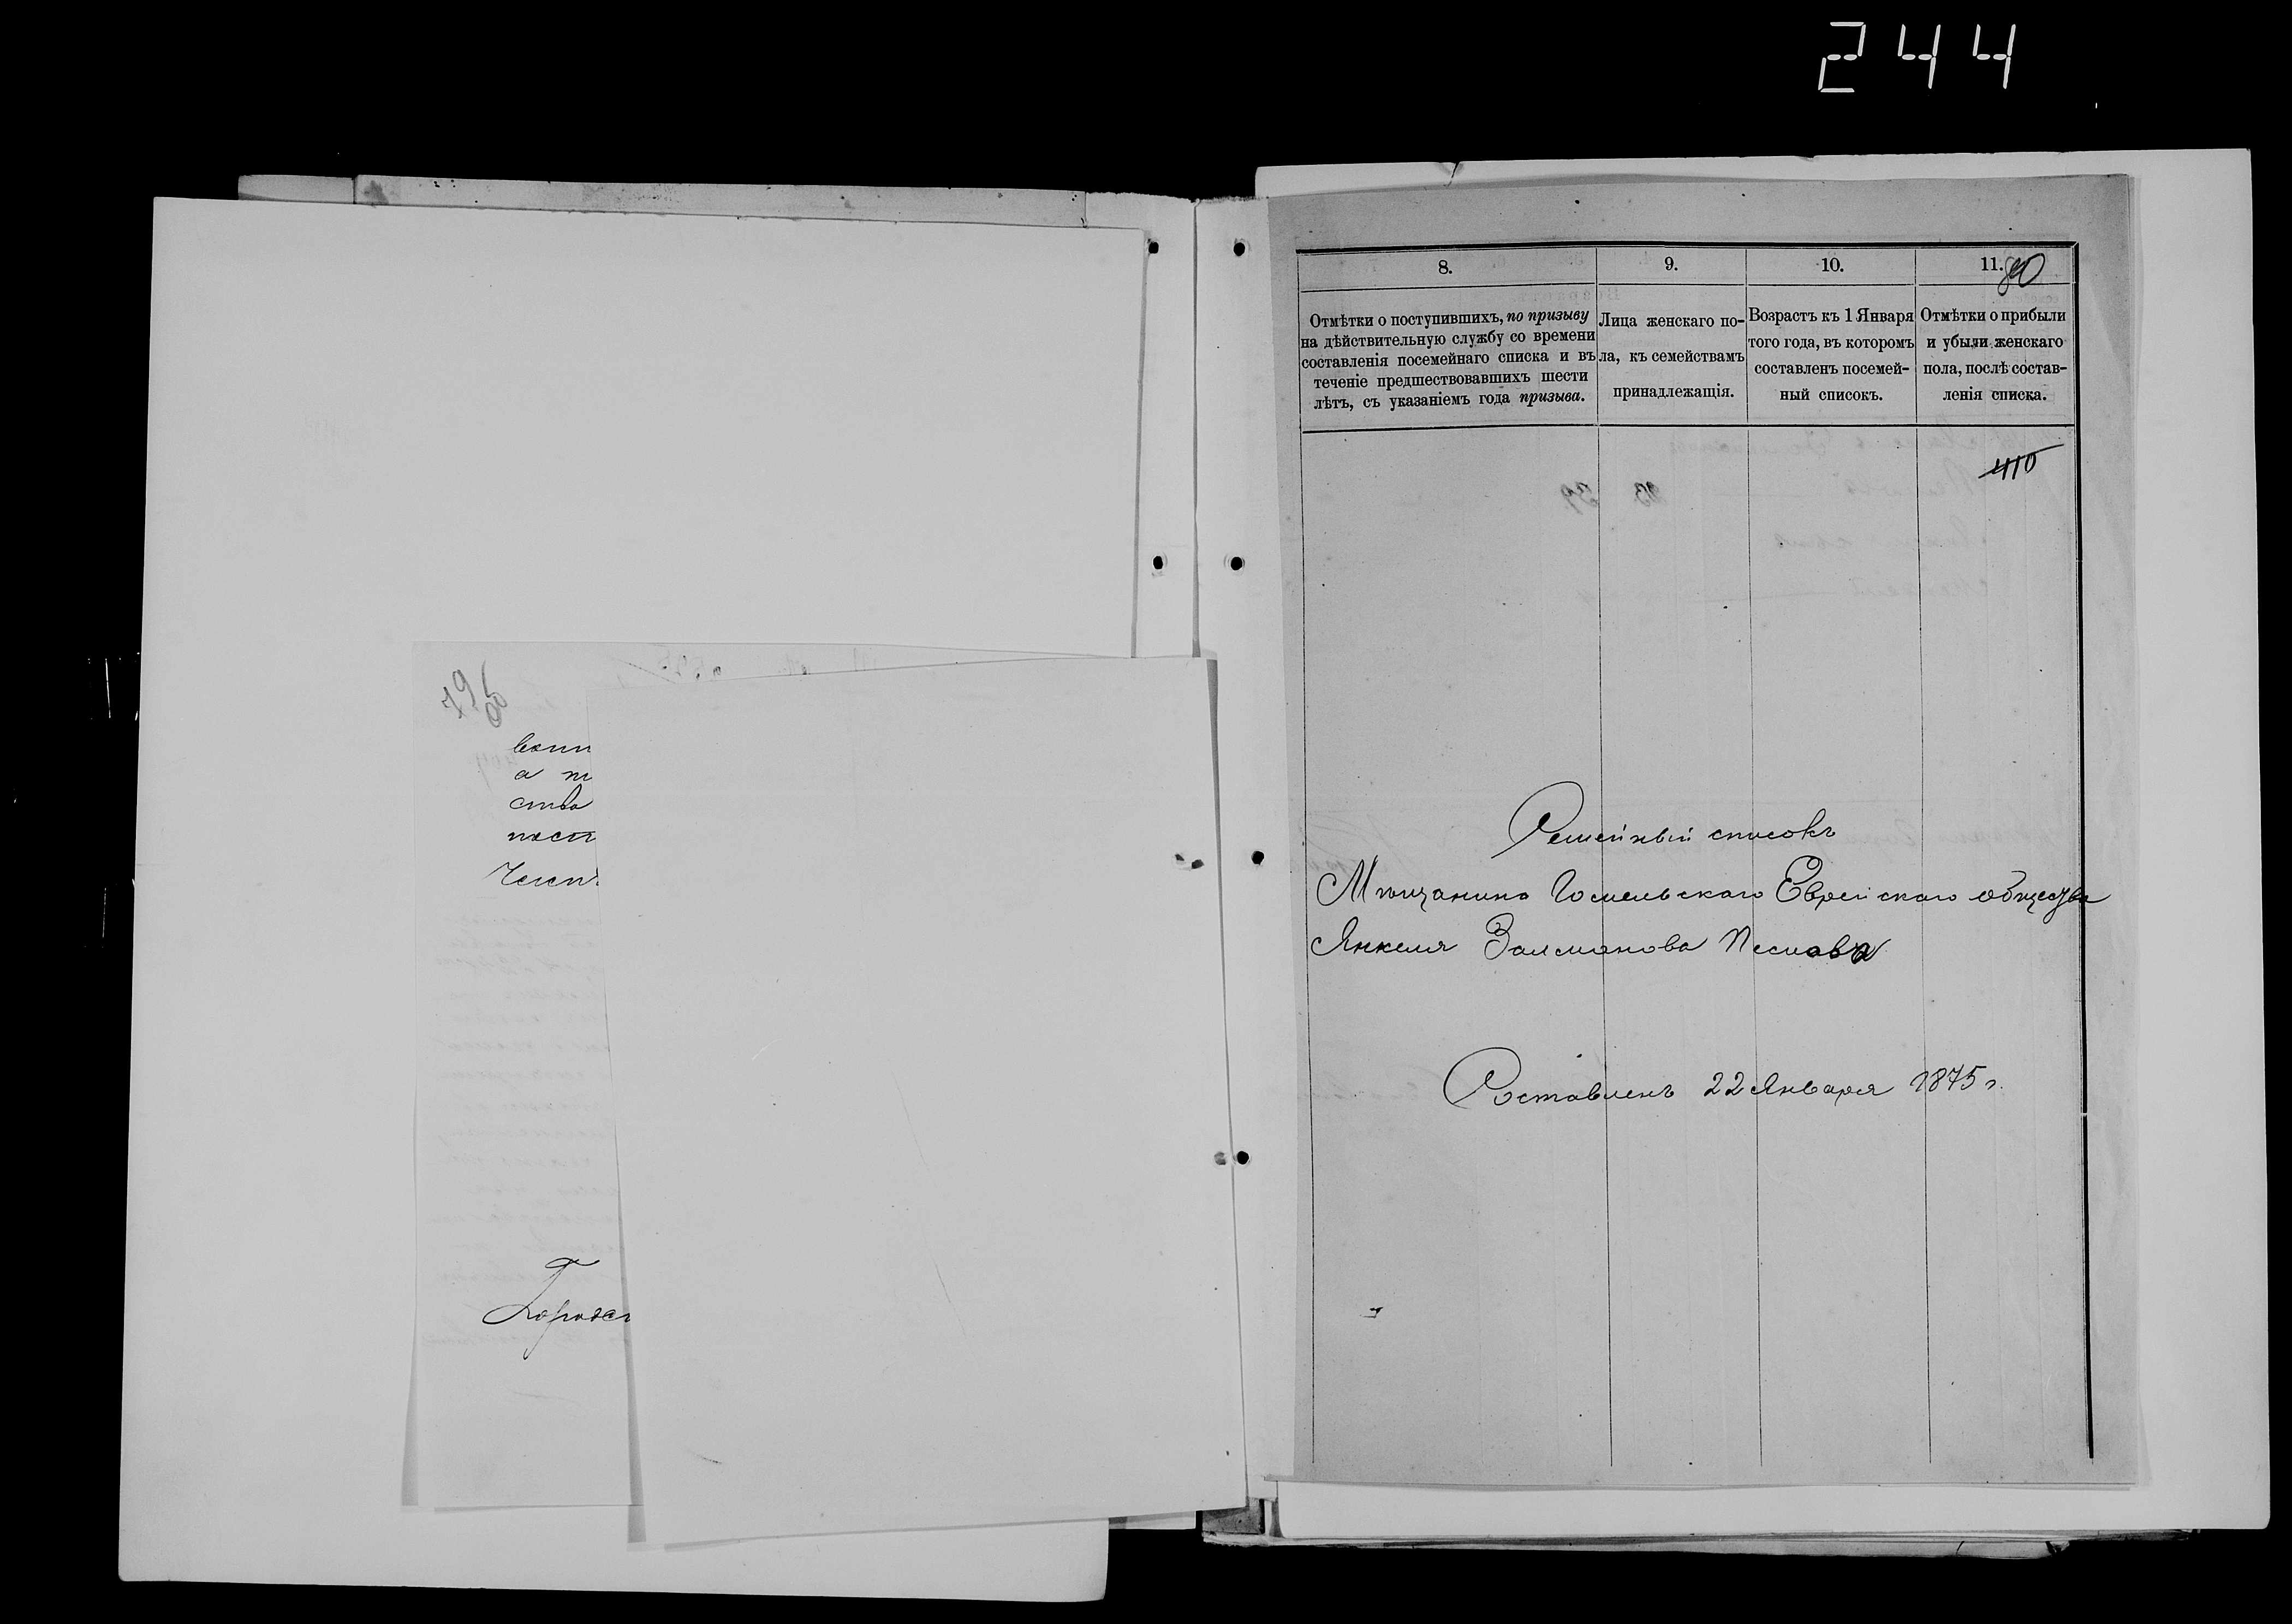 244
796
вогип
а т
ства
пост
Честь
Городск
8.
9.
10.
11.
80
Отмѣтки о поступившихъ, по призыву
на дѣйствительную службу со времени
составленія посемейнаго списка и въ
теченіе предшествовавшихъ шести
лѣтъ, съ указаніемъ года призыва.
Лица женскаго по-
ла, къ семействамъ
принадлежащія.
Возрастъ къ 1 Января
того года, въ которомъ
составленъ посемей-
ный списокъ.
Отмѣтки о прибыли
и убыли женскаго
пола, послѣ состав-
ленія списка.
410
Семейный списокъ
Мѣщанина Гомельскаго Еврейскаго общества
Янкеля Залманова Песлова
Составленъ 22 Января 1875 г.